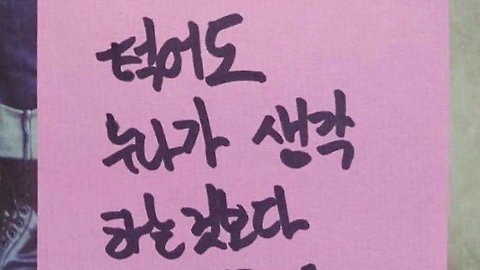 적어도
누나가 생각
하는 것보다